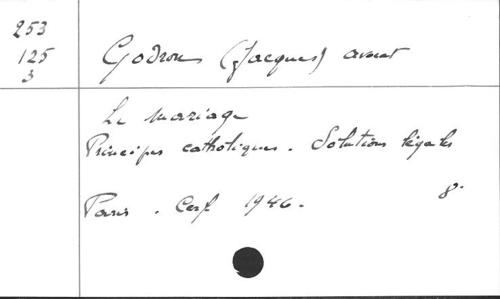 253
125
3
Godron (Jacques) avocat
Le mariage
Principes catholiques. Solutions légales
Paris. Cerf 1946. 8°